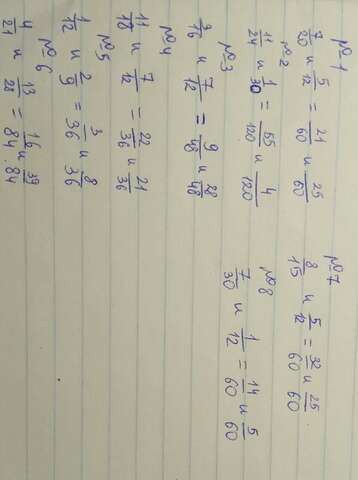 №1
7/20 и 5/12 = 21/60 и 25/60
№2
11/24 и 1/30 = 55/120 и 4/120
№3
3/16 и 7/12 = 9/48 и 28/48
№4
11/18 и 7/12 = 22/36 и 21/36
№5
1/12 и 2/9 = 3/36 и 8/36
№6
4/21 и 13/28 = 16/84 и 39/84
№7
8/15 и 5/12 = 32/60 и 25/60
№8
7/30 и 1/12 = 14/60 и 5/60